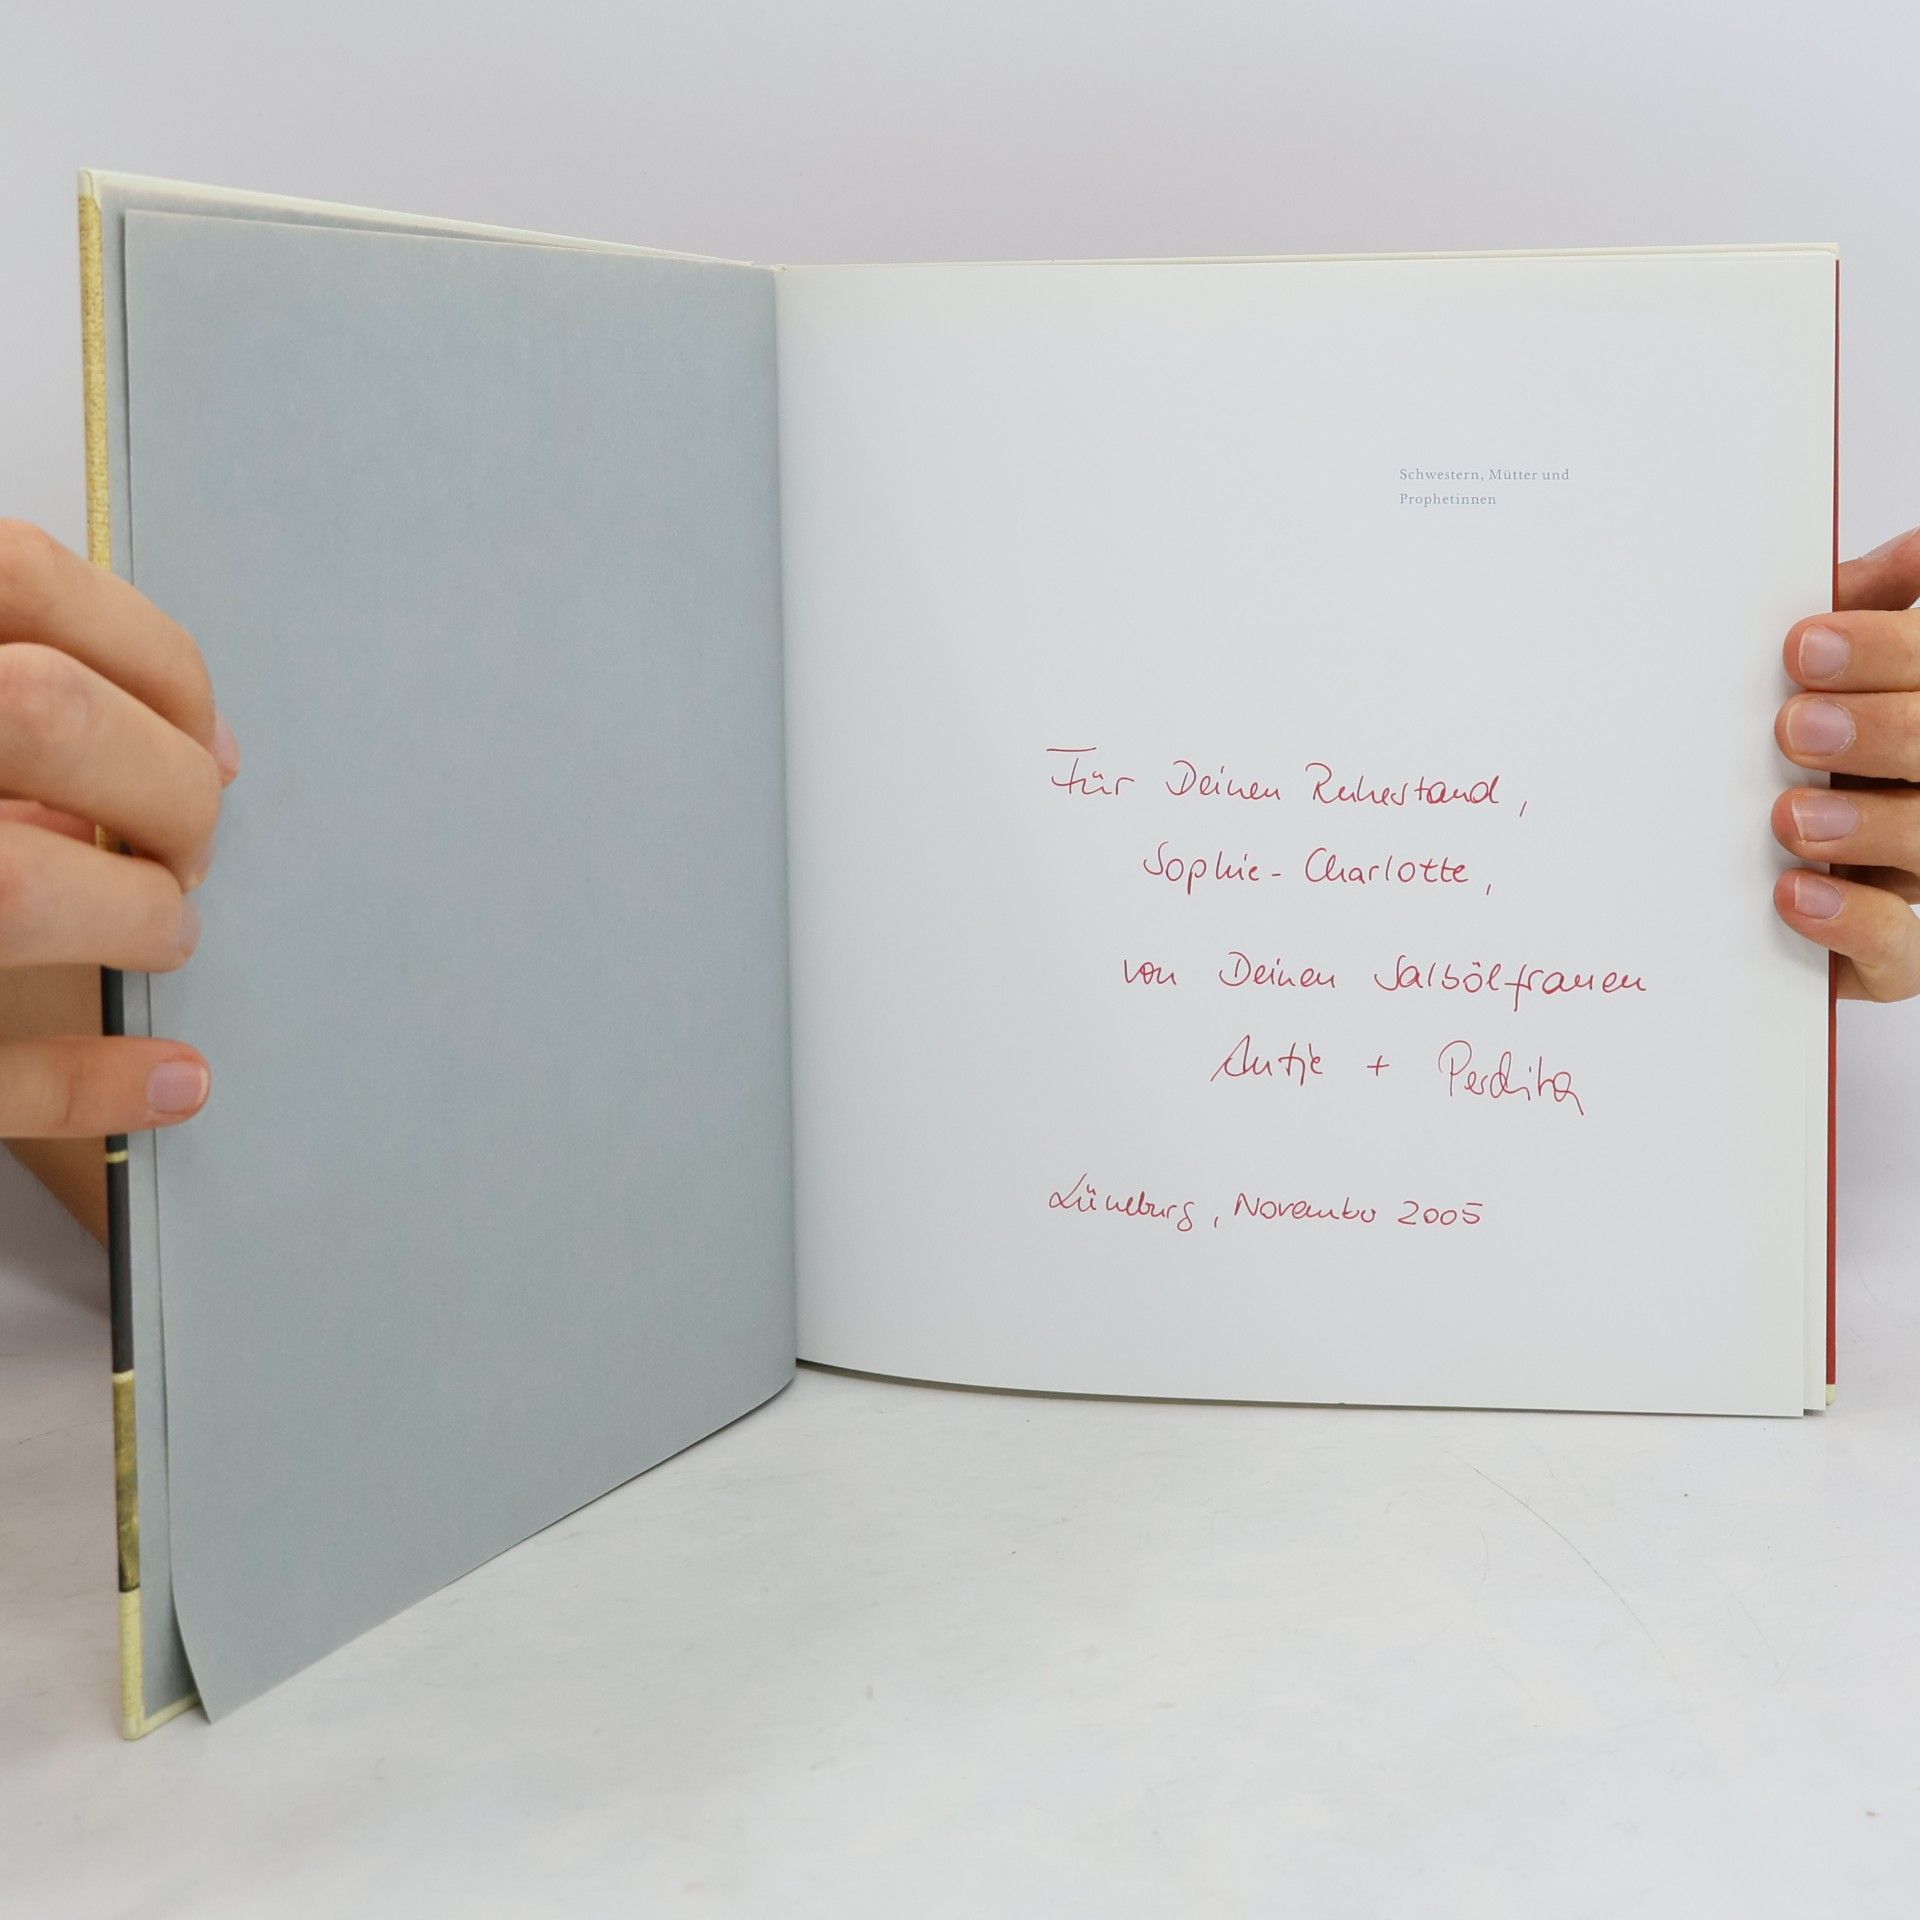 Schwestern, Mütter und
Prophetinnen
Für Deinen Ruhestand,
Sophie-Charlotte,
von Deinen Salbölfrauen
Antje + Perdita
Lüneburg, November 2005